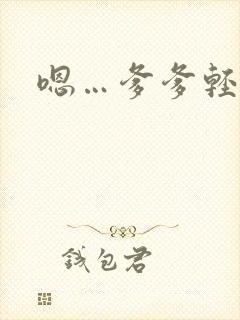 嗯…爹爹輕
錢包君